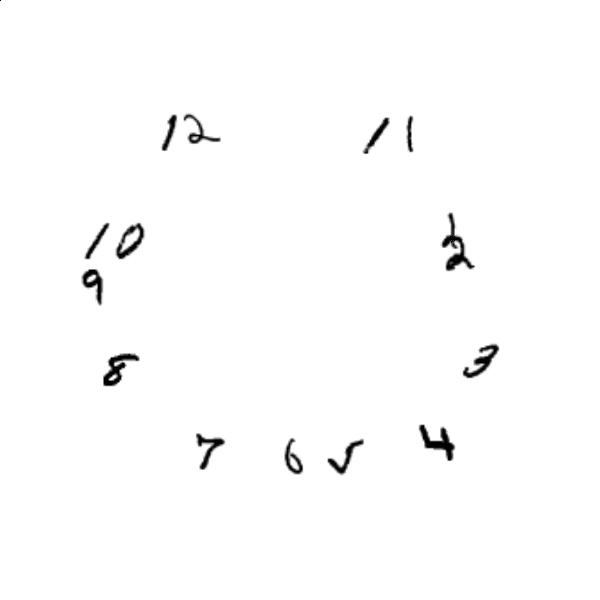 12 11
10 1
2
9
8 3
7 6 5 4